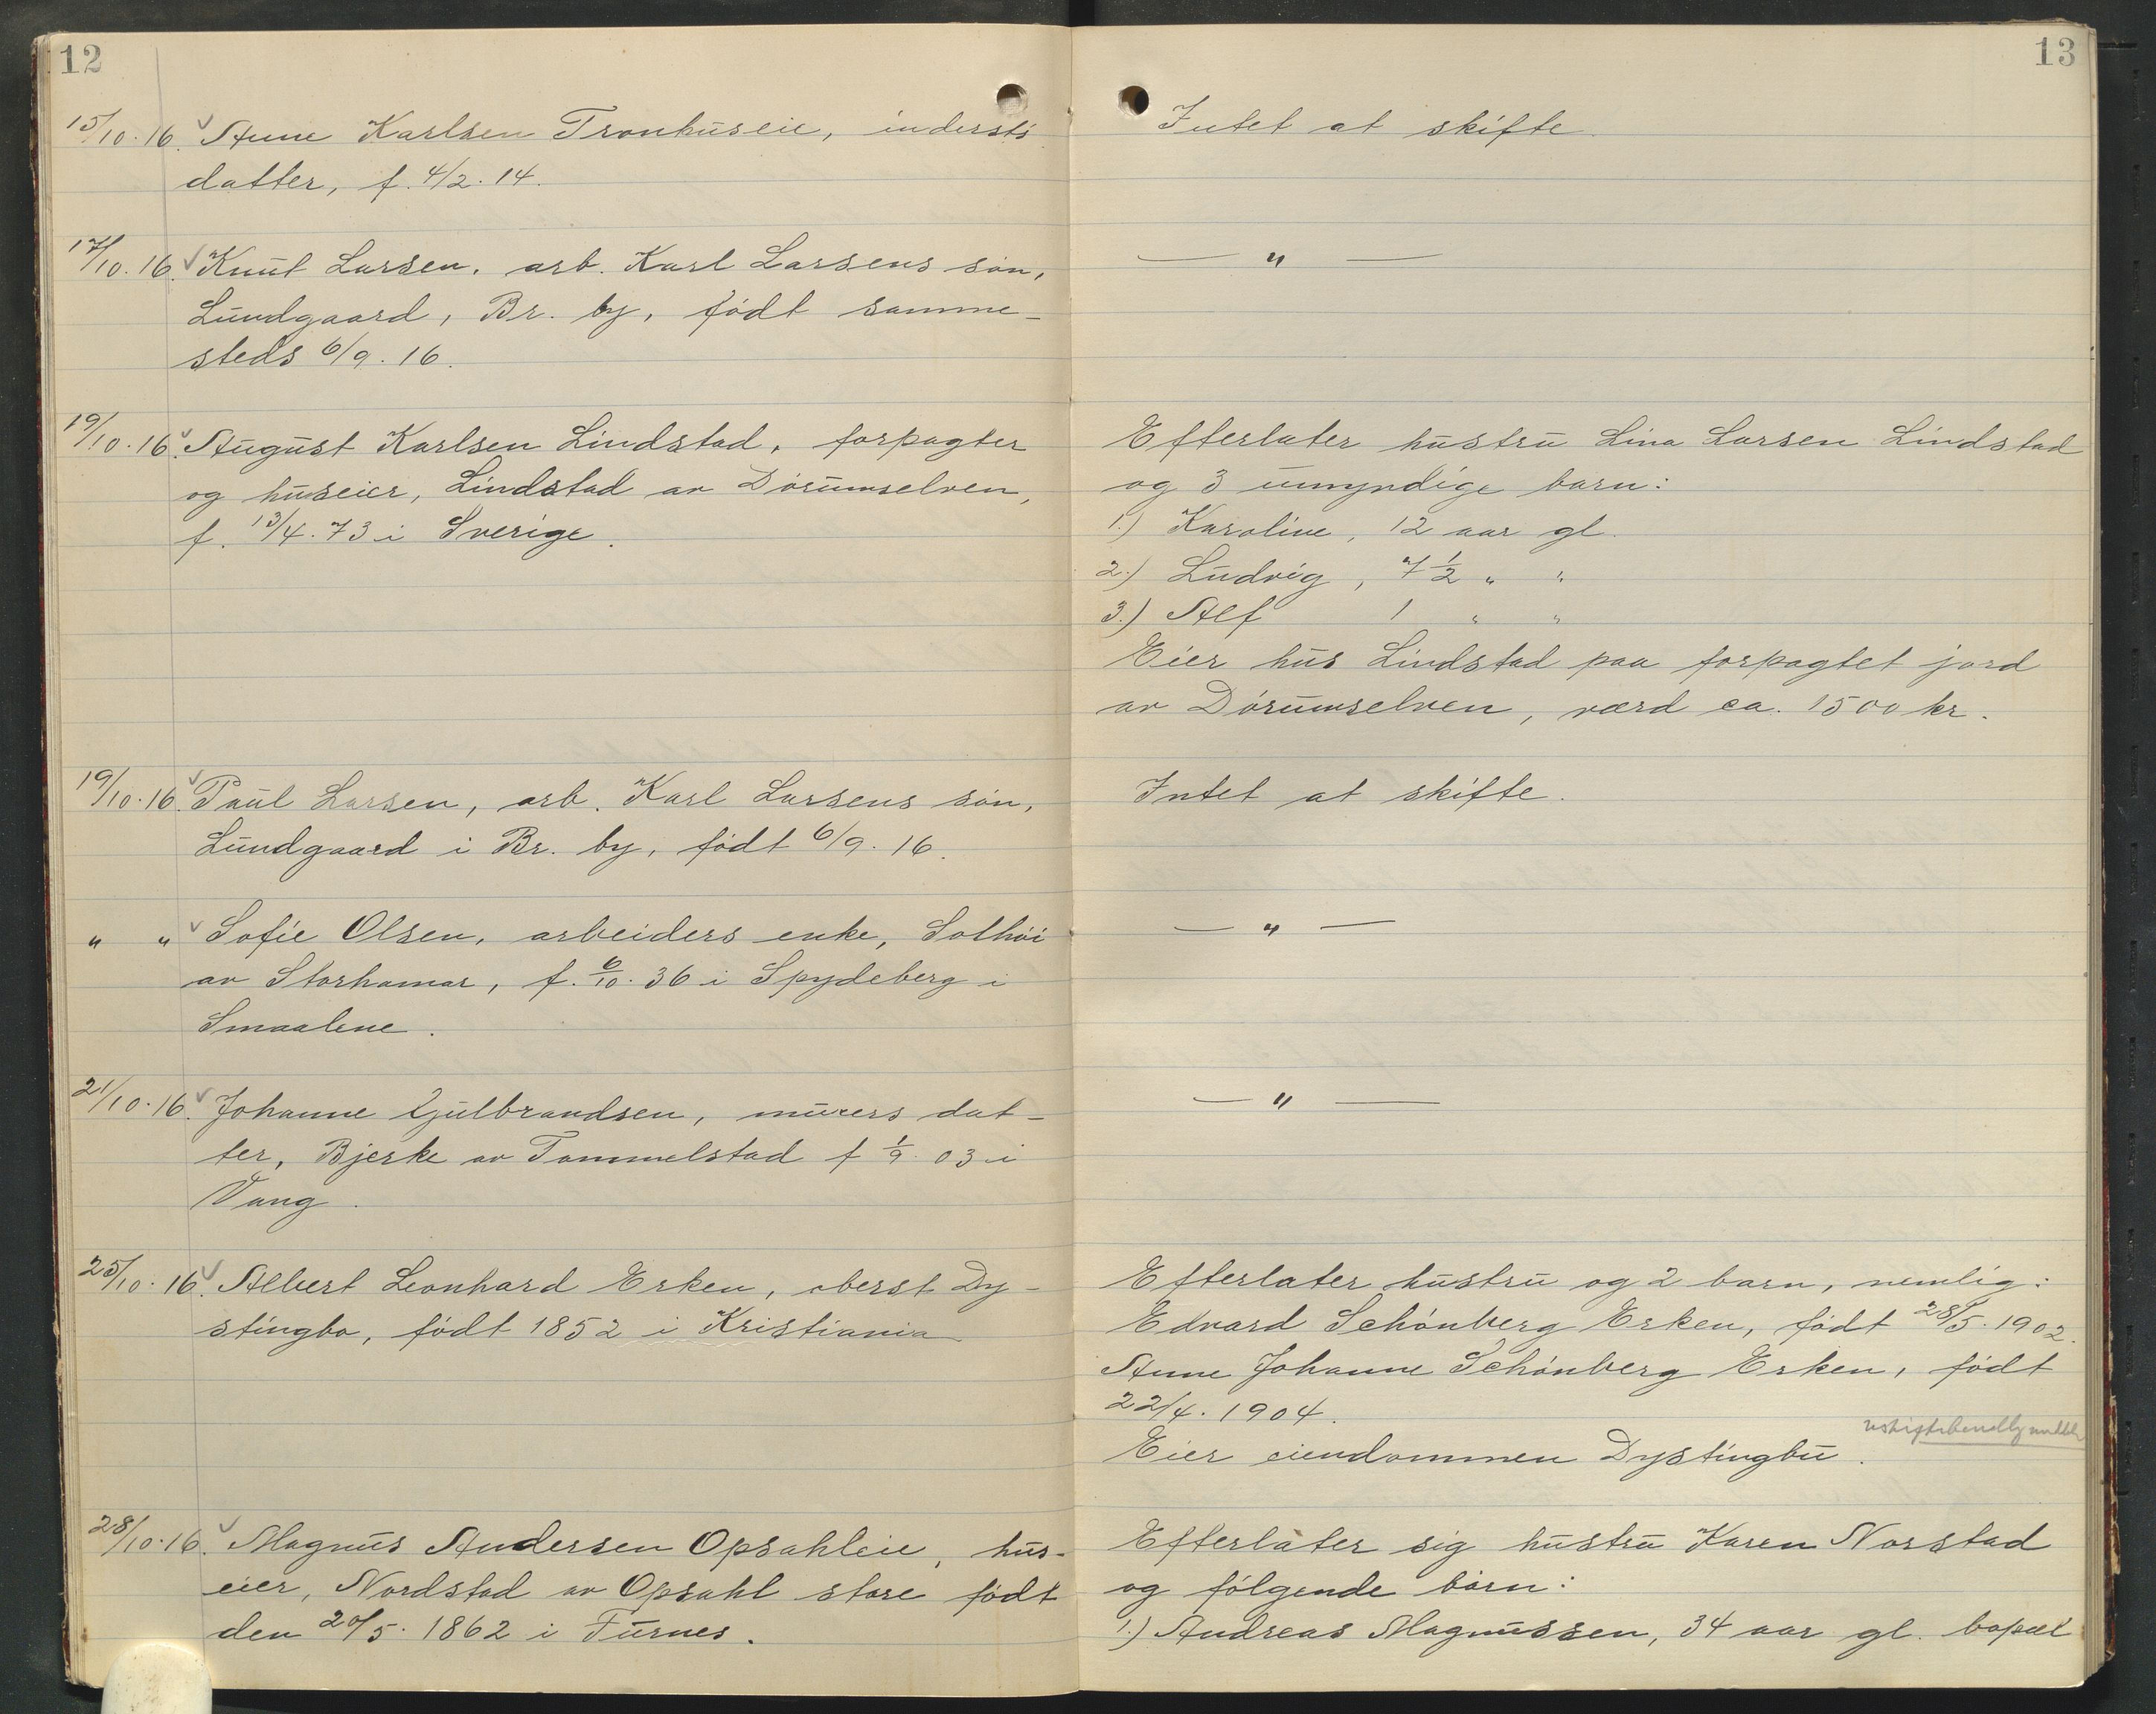 12
15/10.16. Anne Karlsen Tronhuseie, indersts
datter, f. 4/2.14.
17/10.16. Knut Larsen, arb. Karl Larsens søn,
Lundgaard, Br. by, født samme-
steds 6/9.16.
19/10.16. August Karlsen Lindstad, forpagter
og huseier, Lindstad av Dørumselven,
f. 13/4.73 i Sverige.
19/10.16. Paul Larsen, arb. Karl Larsens søn,
Lundgaard i Br. by, født 6/9.16.
" " Sofie Olsen, arbeiders enke, Solhøi
av Storhamar, f. 6/10.36 i Spydeberg i
Smaalene.
21/10.16. Johanne Gulbrandsen, murers dat-
ter, Bjerke av Tommelstad f 1/9.03 i
Vang.
25/10.16. Albert Leonhard Erken, oberst Dy-
stingbo, født 1852 i Kristiania
28/10.16. Magnus Andersen Opsahleie, hus-
eier, Nordstad av Opsahl store født
den 20/5.1862 i Furnes.
13
Intet at skifte.
— " —
Efterlater hustru Lina Larsen Lindstad
og 3 umyndige barn:
1.) Karoline, 12 aar gl.
2.) Ludvig, 7 1/2 " "
3.) Alf 1 " "
Eier hus Lindstad paa forpagtet jord
av Dørumselven, værd ca. 1500 kr.
Intet at skifte.
— " —
— " —
Efterlater hustru og 2 barn, nemlig:
Edvard Schønberg Erken, født 28/5.1902.
Anne Johanne Schønberg Erken, født
22/4.1904.
Eier eiendommen Dystingbu.
Efterlater sig hustru Karen Norstad
og følgende børn:
1.) Andreas Magnussen, 34 aar gl. bopæl